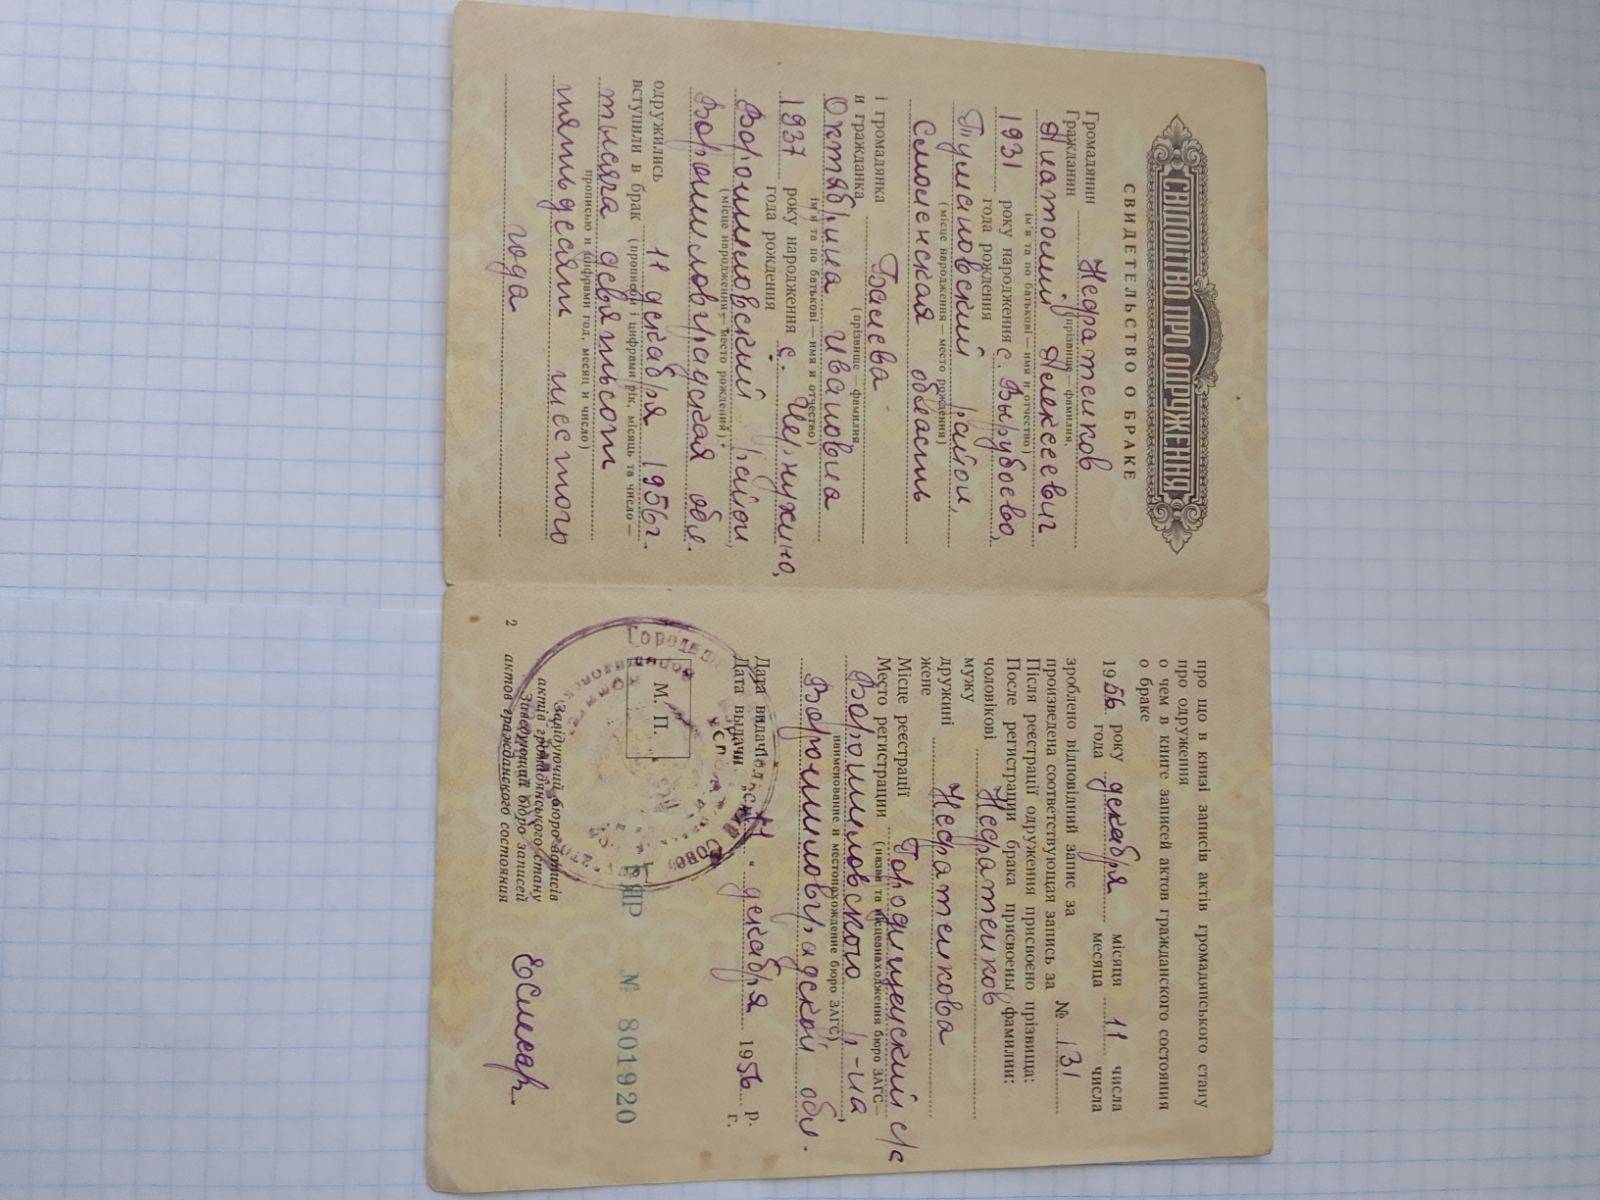 СВІДОЦТВО ПРО ОДРУЖЕННЯ
СВИДЕТЕЛЬСТВО О БРАКЕ
Громадянин
Гражданин
(прізвище — фамилия,
Анатолий Алексеевич
ім'я та по батькові — имя и отчество)
1931 року народження с. Вырубоево,
года рождения
Тумановский район,
(місце народження — место рождения)
Смоленская область
і громадянка
и гражданка
Балева
(прізвище — фамилия,
Октябрина Ивановна
ім'я та по батькові — имя и отчество)
1937 року народження с.
года рождения
Ворошиловский район,
(місце народження — место рождения)
Ворошиловградская обл.
одружились
вступили в брак 11 декабря 1956г.
(прописом і цифрами рік, місяць та число —
тысяча девятьсот
прописью и цифрами год, месяц и число)
пятьдесят шестого
года
про що в книзі записів актів громадянського стану
про одруження
о чем в книге записей актов гражданского состояния
о браке
1956 року декабря місяця 11 числа
года месяца числа
зроблено відповідний запис за
произведена соответствующая запись за № 131
Після реєстрації одруження присвоєно прізвища:
После регистрации брака присвоены фамилии:
чоловікові
мужу
дружині
жене
Місце реєстрації
Место регистрации Городищенский с/с
(назва та місцезнаходження бюро ЗАГС —
Ворошиловского р-на,
наименование и местонахождение бюро ЗАГС)
Ворошиловградской обл.
Дата видачі
Дата выдачи „11“ декабря 1956 р.
г.
М. П.
ЯР № 801920
Завідуючий бюро записів
актів громадянського стану
Заведующий бюро записей
актов гражданского состояния
2